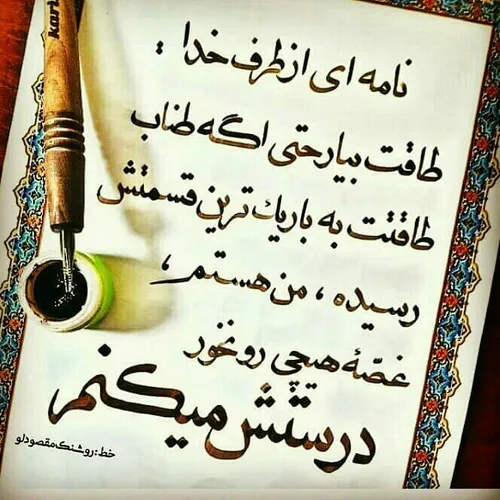 نامه ای از طرف خدا :
طاقت بیار حتی اگه طناب
طاقتت به باریک ترین قسمتش
رسیده ، من هستم ،
غصّهٔ هیچی رو نخور
درستش میکنم
خط: روشنک مقصودلو
kari